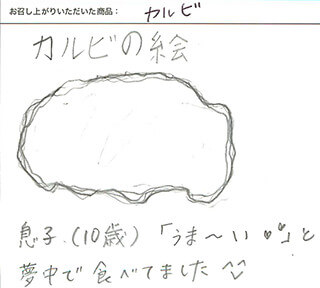 お召し上がりいただいた商品： カルビ
カルビの絵
息子（10歳）「うま〜い♥♥」と
夢中で食べてました^^